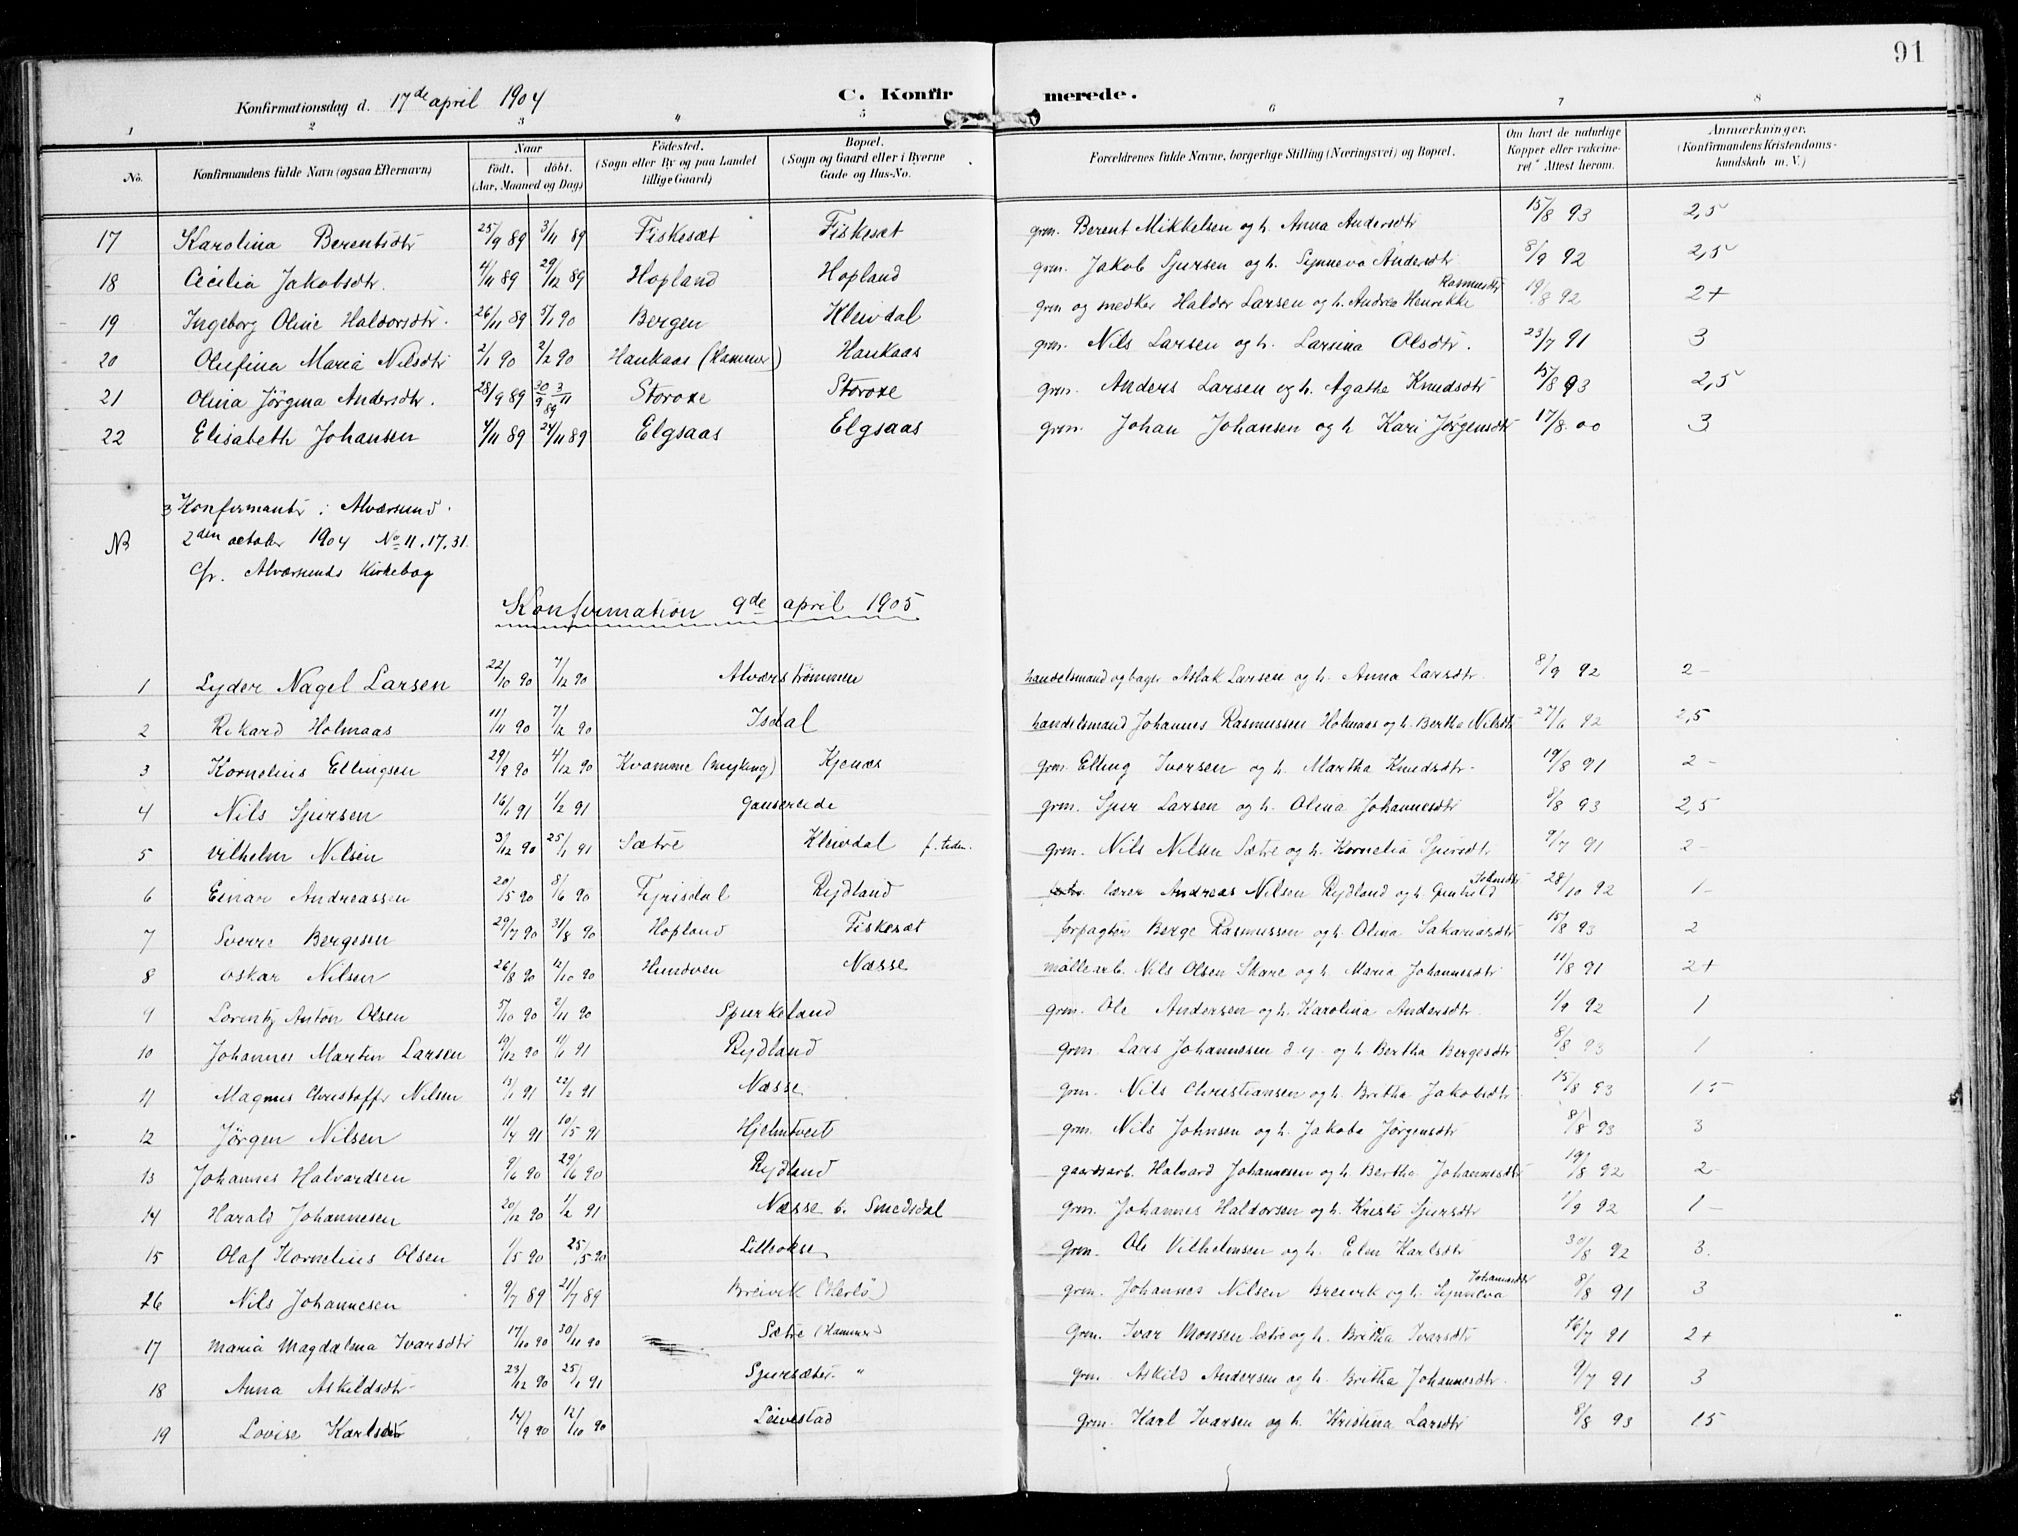 91
Konfirmationsdag d. 17de april 1904 C. Konfir merede.
1 2 3 4 5 6 7 8
No. Konfirmandens fulde Navn (ogsaa Efternavn) Naar født. døbt. (Aar, Maaned og Dag) Fødested. (Sogn eller By og paa Landet tillige Gaard) Bopæl. (Sogn og Gaard eller i Byerne Gade og Hus-No. Forældrenes fulde Navne, borgerlige Stilling (Næringsvei) og Bopæl. Om havt de naturlige Kopper eller vakcineret? Attest herom. Anmærkninger. (Konfirmandens Kristendomskundskab m. V.)
17 Karolina Berentsdtr 25/9 89 3/11 89 Fiskesæt Fiskesæt grm. Berent Mikkelsen og h. Anna Andersdtr 15/8 93 2,5
18 Cecilia Jakobsdtr. 4/11 89 29/12 89 Hopland Hopland grm. Jakob Sjursen og h. Synneva Andersdtr 8/9 92 2,5
19 Ingeborg Oline Haldorsdtr. 26/11 89 5/1 90 Bergen Kleivdal grm og medker Haldor Larsen og h. Andrea Henrikke Rasmusdtr 19/8 92 2+
20 Olufina Maria Nilsdtr 2/1 90 2/2 90 Haukaas (Hammer) Haukaas grm. Nils Larsen og h. Larsina Olsdtr. 23/7 91 3
21 Olina Jørgina Andersdtr. 28/9 89 30/9 3/11 89 Storoxe Storoxe grm. Anders Larsen og h. Agathe Knudsdtr 15/8 93 2,5
22 Elisabeth Johansen 4/11 89 24/11 89 Elgsaas Elgsaas grm. Johan Johansen og h Kari Jørgensdtr 17/8 00 3
NB 3 Konfirmanter i Alversund.
2den october 1904 No 11.17.31.
Cfr. Alversunds Kirkebog
Konfirmation 9de april 1905
1 Lyder Nagel Larsen 22/10 90 7/12 90 Alverstrømmen handelsmand og bager Aslak Larsen og h. Anna Larsdtr. 8/9 92 2-
2 Rikard Holmaas 11/11 90 7/12 90 Isdal handelsmand Johannes Rasmussen Holmaas og h. Bertha Nilsdtr 27/6 92 2,5
3 Kornelius Ellingsen 29/9 90 4/12 90 Kvamme (Myking) Kjenæs grm. Elling Iversen og h. Martha Knudsdtr. 19/8 91 2-
4 Nils Sjursen 16/1 91 1/2 91 grm. Sjur Larsen og h. Olina Johannesdtr 8/8 93 2,5
5 Vilhelm Nilsen 3/12 90 25/1 91 Sætre Kleivdal f. tiden. grm. Nils Nilsen Sætre og h. Kornelia Sjursdtr 9/7 91 2-
6 Einar Andreassen 20/5 90 8/6 90 Fyrisdal Rydland lærer Andreas Nilsen Rydland og h. Gunhild Johnsdtr 28/10 92 1-
7 Sverre Bergesen 29/7 90 31/8 90 Hopland Fiskesæt forpagter Berge Rasmussen og h. Olina Sakariasdtr 15/8 93 2
8 Oskar Nilsen 26/8 90 12/10 90 Hundven Næsse møllearb. Nils Olsen Skare og h. Maria Johannesdtr 11/8 91 2+
9 Lorentz Anton Olsen 5/10 90 2/11 90 Spurkeland grm. Ole Andersen og h. Karolina Andersdtr. 1/9 92 1
10 Johannes Martin Larsen 19/12 90 11/1 91 Rydland grm. Lars Johannesen d. y. og h Bertha Bergesdtr 8/8 93 1
11 Magnus Christoffr Nilsen 15/1 91 22/2 91 Næsse grm. Nils Christiansen og h. Britha Jakobsdtr. 15/8 93 15
12 Jørgen Nilsen 11/4 91 10/5 91 Hjelmtveit grm. Nils Johnsen og h. Jakoba Jørgensdtr 8/8 93 3
13 Johannes Halvardsen 9/6 90 29/6 90 Rydland gaardsarb. Halvard Johannesen og h. Bertha Johannesdtr 19/8 92 2-
14 Harald Johannesen 20/12 90 1/2 91 Næsse b. Smedsdal grm. Johannes Haldorsen og h. Kristi Sjursdtr 1/9 92 1-
15 Olaf Kornelius Olsen 1/5 90 25/5 90 Lilleokse grm. Ole Vilhelmsen og h. Elen Karlsdtr 30/8 92 3.
26 Nils Johannesen 9/7 89 21/7 89 Breivik (Herlø) grm. Johannes Nilsen Breivik og h. Synneva Johannesdtr 8/8 91 3
17 Maria Magdalena Ivarsdtr 17/10 90 30/11 90 Sætre (Hammer) grm. Ivar Monsen Sætre og h. Britha Ivarsdtr 16/7 91 2+
18 Anna Askildsdtr. 23/12 90 25/1 91 Sjursæter " grm. Askild Andersen og h. Britha Johannesdtr. 9/7 91 3
19 Lovise Karlsdtr 14/9 90 12/10 90 Leivestad grm. Karl Ivarsen og h. Kristina Larsdtr 8/8 93 15